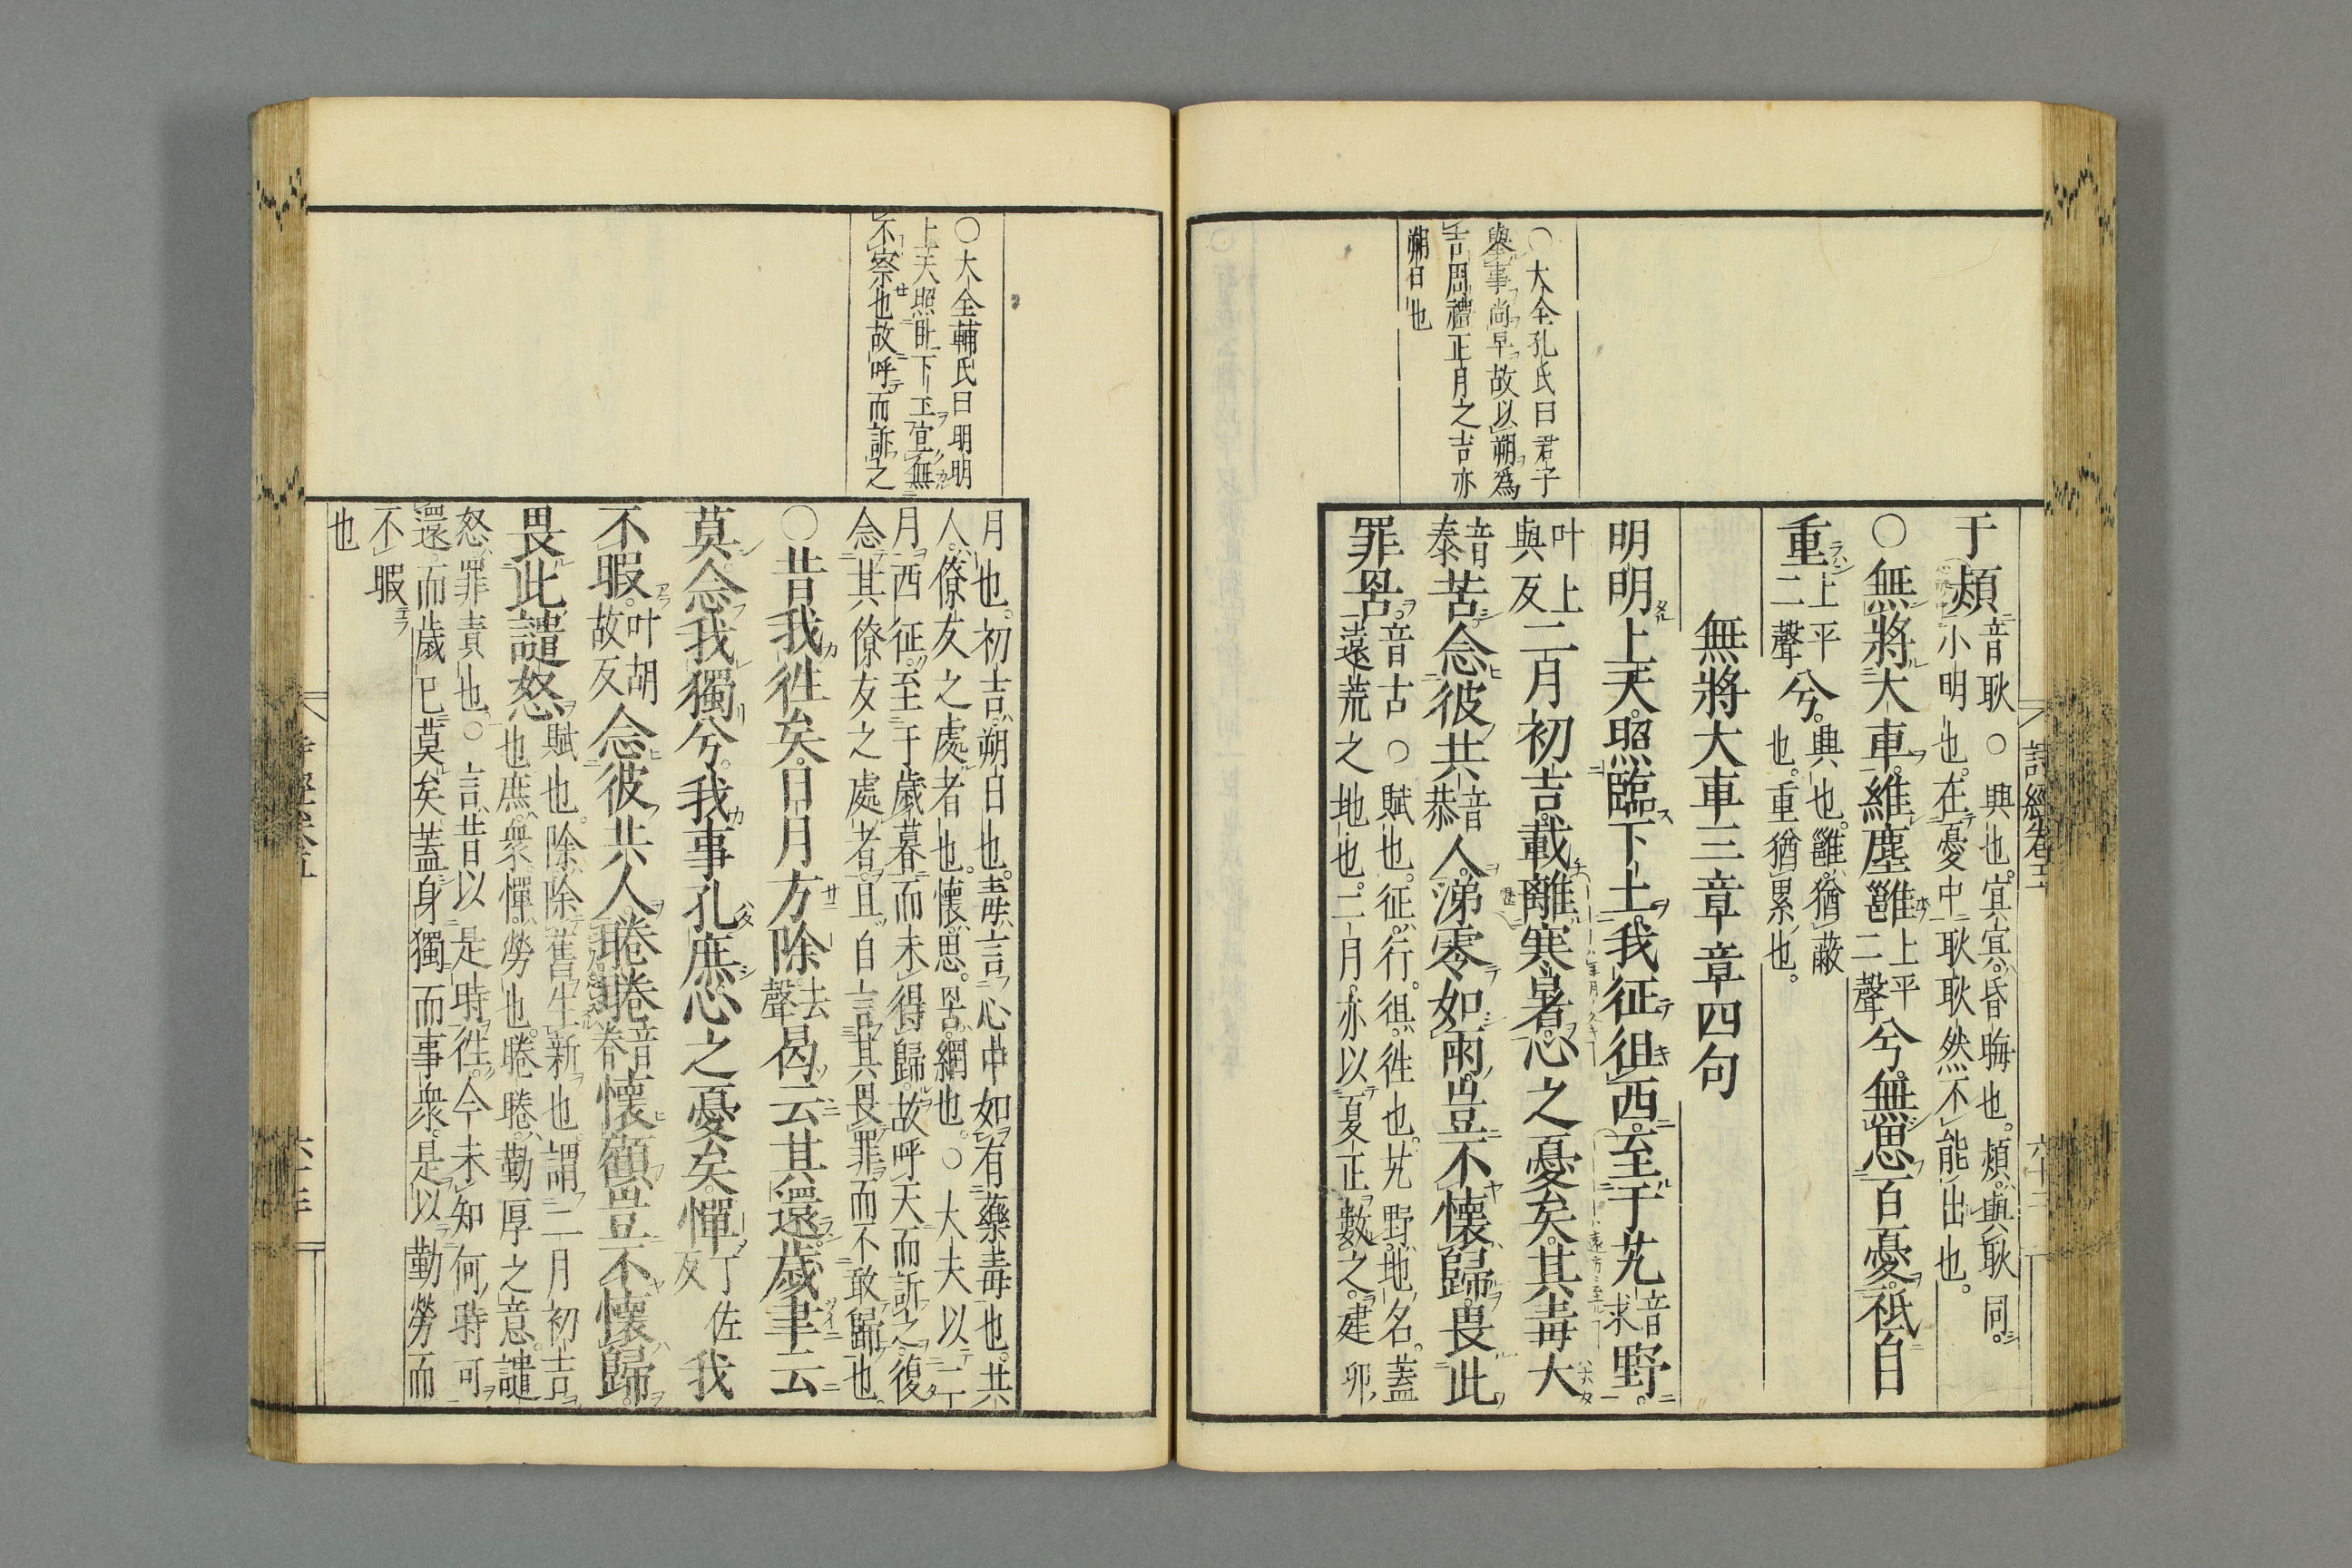 ○大全孔氏曰君子
舉事尚早故以朔爲
吉周禮正月之吉亦
朔日也
于熲音耿○興也冥冥昏晦也熲與耿同
小明也在憂中耿耿然不能出也
○無將大車維塵雝上平二聲兮無思百憂祇自
重上平二聲兮興也雝猶蔽也重猶累也
無將大車三章章四句
明明上天照臨下土我征徂西至于艽音求野
叶上與反二月初吉載離寒暑心之憂矣其毒大
音泰苦念彼共音恭人涕零如雨豈不懷歸畏此
罪罟音古○賦也征行徂往也艽野地名蓋
遠荒之地也二月亦以夏正數之建卯
詩經卷五
六十三
○大全輔氏曰明明
上天照臨下土宜無
不察也故呼而訴之
月也初吉朔日也毒言心中如有藥毒也共
人僚友之處者也懷思罟網也○大夫以二
月西征至于歲暮而未得歸故呼天而訴之復
念其僚友之處者且自言其畏罪而不敢歸也
○昔我往矣日月方除去聲曷云其還歲聿云
莫念我獨兮我事孔庶心之憂矣憚丁佐反我
不暇叶胡故反念彼共人睠睠音眷懷顧豈不懷歸
畏此譴怒賦也除除舊生新也謂二月初吉
也庶衆憚勞也睠睠勤厚之意譴
怒罪責也○言昔以是時往今未知何時可
還而歲已莫矣蓋身獨而事衆是以勤勞而
不暇
也